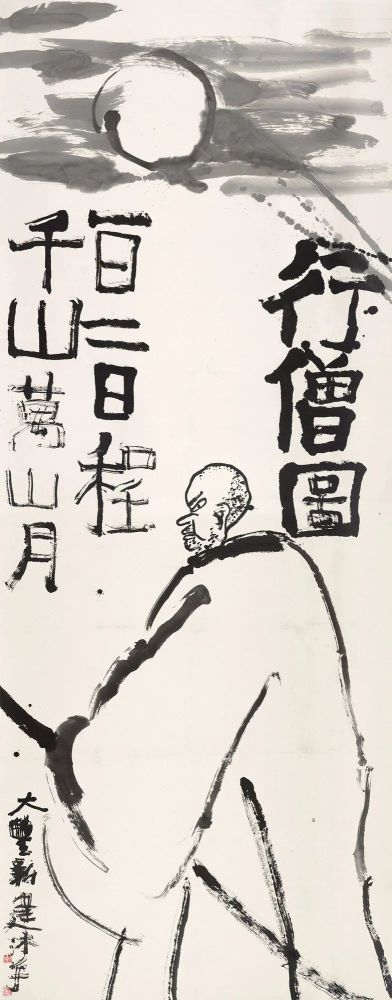 行僧圖
一日二日程
千山萬山月
大豐新建沐手